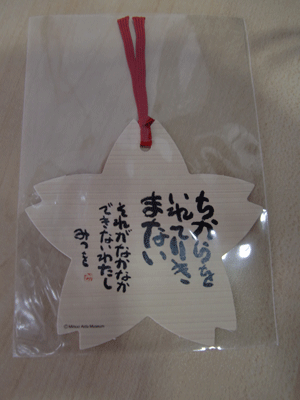 ちからを
いれてりき
まない
それがなかなか
できないわたし
みつを
©Mitsuo Aida Museum